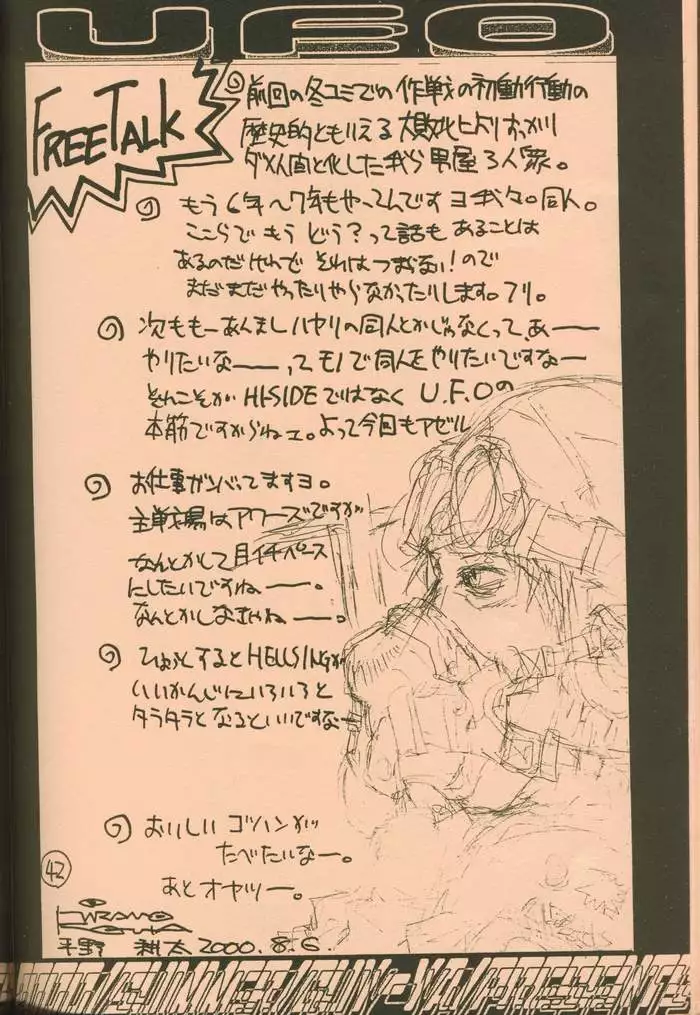 UFO
FREE TALK
前回の冬コミでの作戦の初動行動の
歴史的ともいえる大敗北によりすっかり
ダメ人間と化した我ら甲屋3人衆。
もう6年~7年もやってんですヨ我々。同人。
ここらでもうどう?って話もあることは
あるのだけれど それはつまらない!ので
まだまだやったりやらなかったりします。フリ。
次ももーあんましハヤリの同人とかじゃなくって、あ——
やりたいな——ってモノで同人をやりたいですなー
それこそがHI-SIDEではなく U.F.Oの
本筋ですからねェ。よって今回もアゼル
お仕事ガンバってますヨ。
主戦場はアワーズですが
なんとかして月イチペース
にしたいですねー——。
なんとかしなきゃねー——。
ひょっとするとHELLSINGが
いいかんじにいろいろと
タラタラとなるといいですなー
おいしいゴハンが
たべたいなー。
あとオヤツー。
42
HIRANO
KOUTA
平野 耕太 2000.8.6.
SUMMER PRESENTS